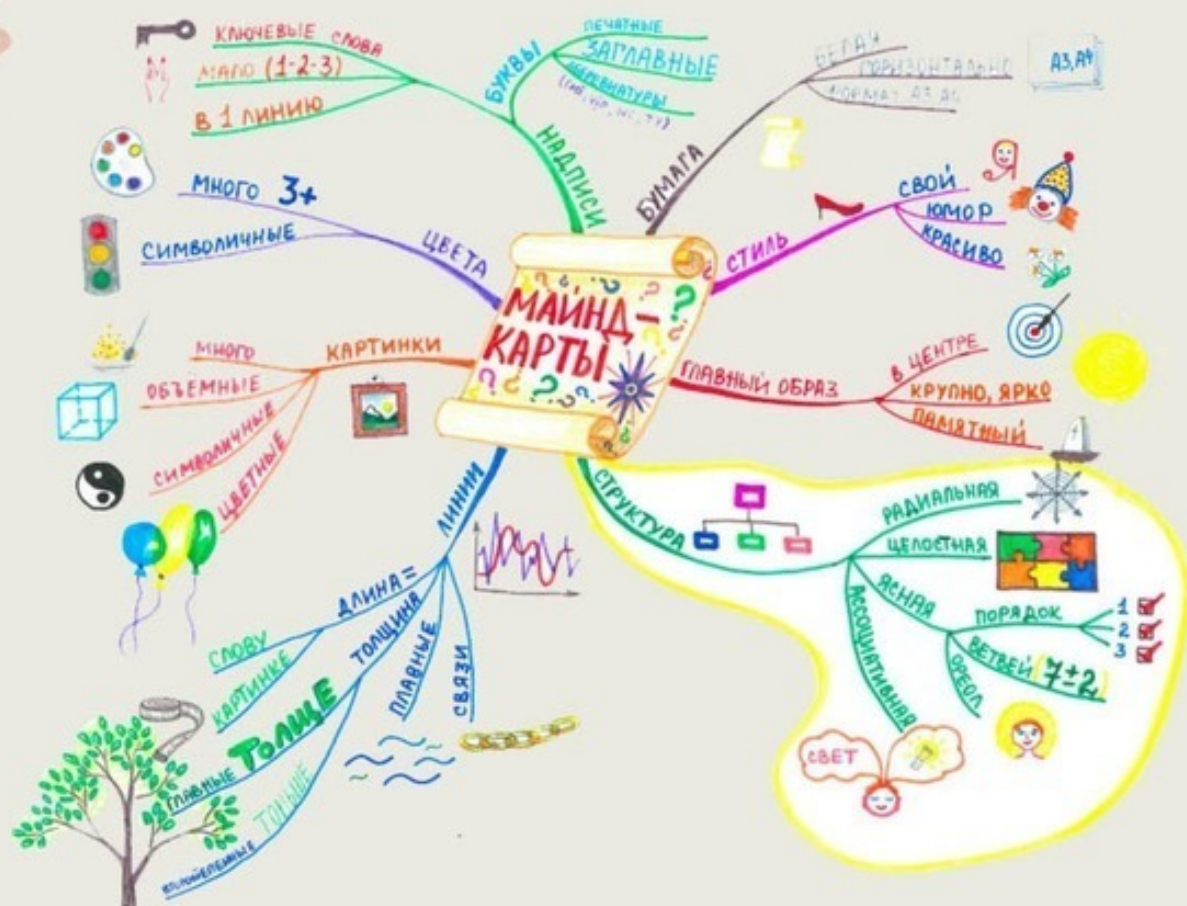 МАЙНД-
КАРТЫ
НАДПИСИ
БУКВЫ
ПЕЧАТНЫЕ
ЗАГЛАВНЫЕ
КЛЮЧЕВЫЕ СЛОВА
МАЛО (1-2-3)
В 1 ЛИНИЮ
БУМАГА
БЕЛАЯ
ГОРИЗОНТАЛЬНО
ФОРМАТ А3, А4
А3, А4
СТИЛЬ
СВОЙ
ЮМОР
КРАСИВО
ГЛАВНЫЙ ОБРАЗ
В ЦЕНТРЕ
КРУПНО, ЯРКО
ПАМЯТНЫЙ
СТРУКТУРА
РАДИАЛЬНАЯ
ЦЕЛОСТНАЯ
ЯСНАЯ
ПОРЯДОК
1
2
3
ВЕТВЕЙ (7±2)
ОРЕОЛ
АССОЦИАТИВНАЯ
СВЕТ
ЛИНИИ
ДЛИНА =
СЛОВУ
КАРТИНКЕ
ТОЛЩИНА
ГЛАВНЫЕ ТОЛЩЕ
ТОНЬШЕ
ПЛАВНЫЕ
СВЯЗИ
КАРТИНКИ
МНОГО
ОБЪЁМНЫЕ
СИМВОЛИЧНЫЕ
ЦВЕТНЫЕ
ЦВЕТА
МНОГО 3+
СИМВОЛИЧНЫЕ